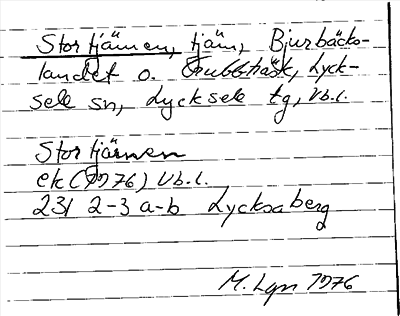 Stortjärnen, tjäm, Bjurbäcks-
landet o. Grubbträsk, Lyck-
sele sn, Lycksele tg, Vb.l.
Stortjärnen
ek (1976) Vb.l.
23I 2-3 a-b Lycksaberg
M. Lgn 1976